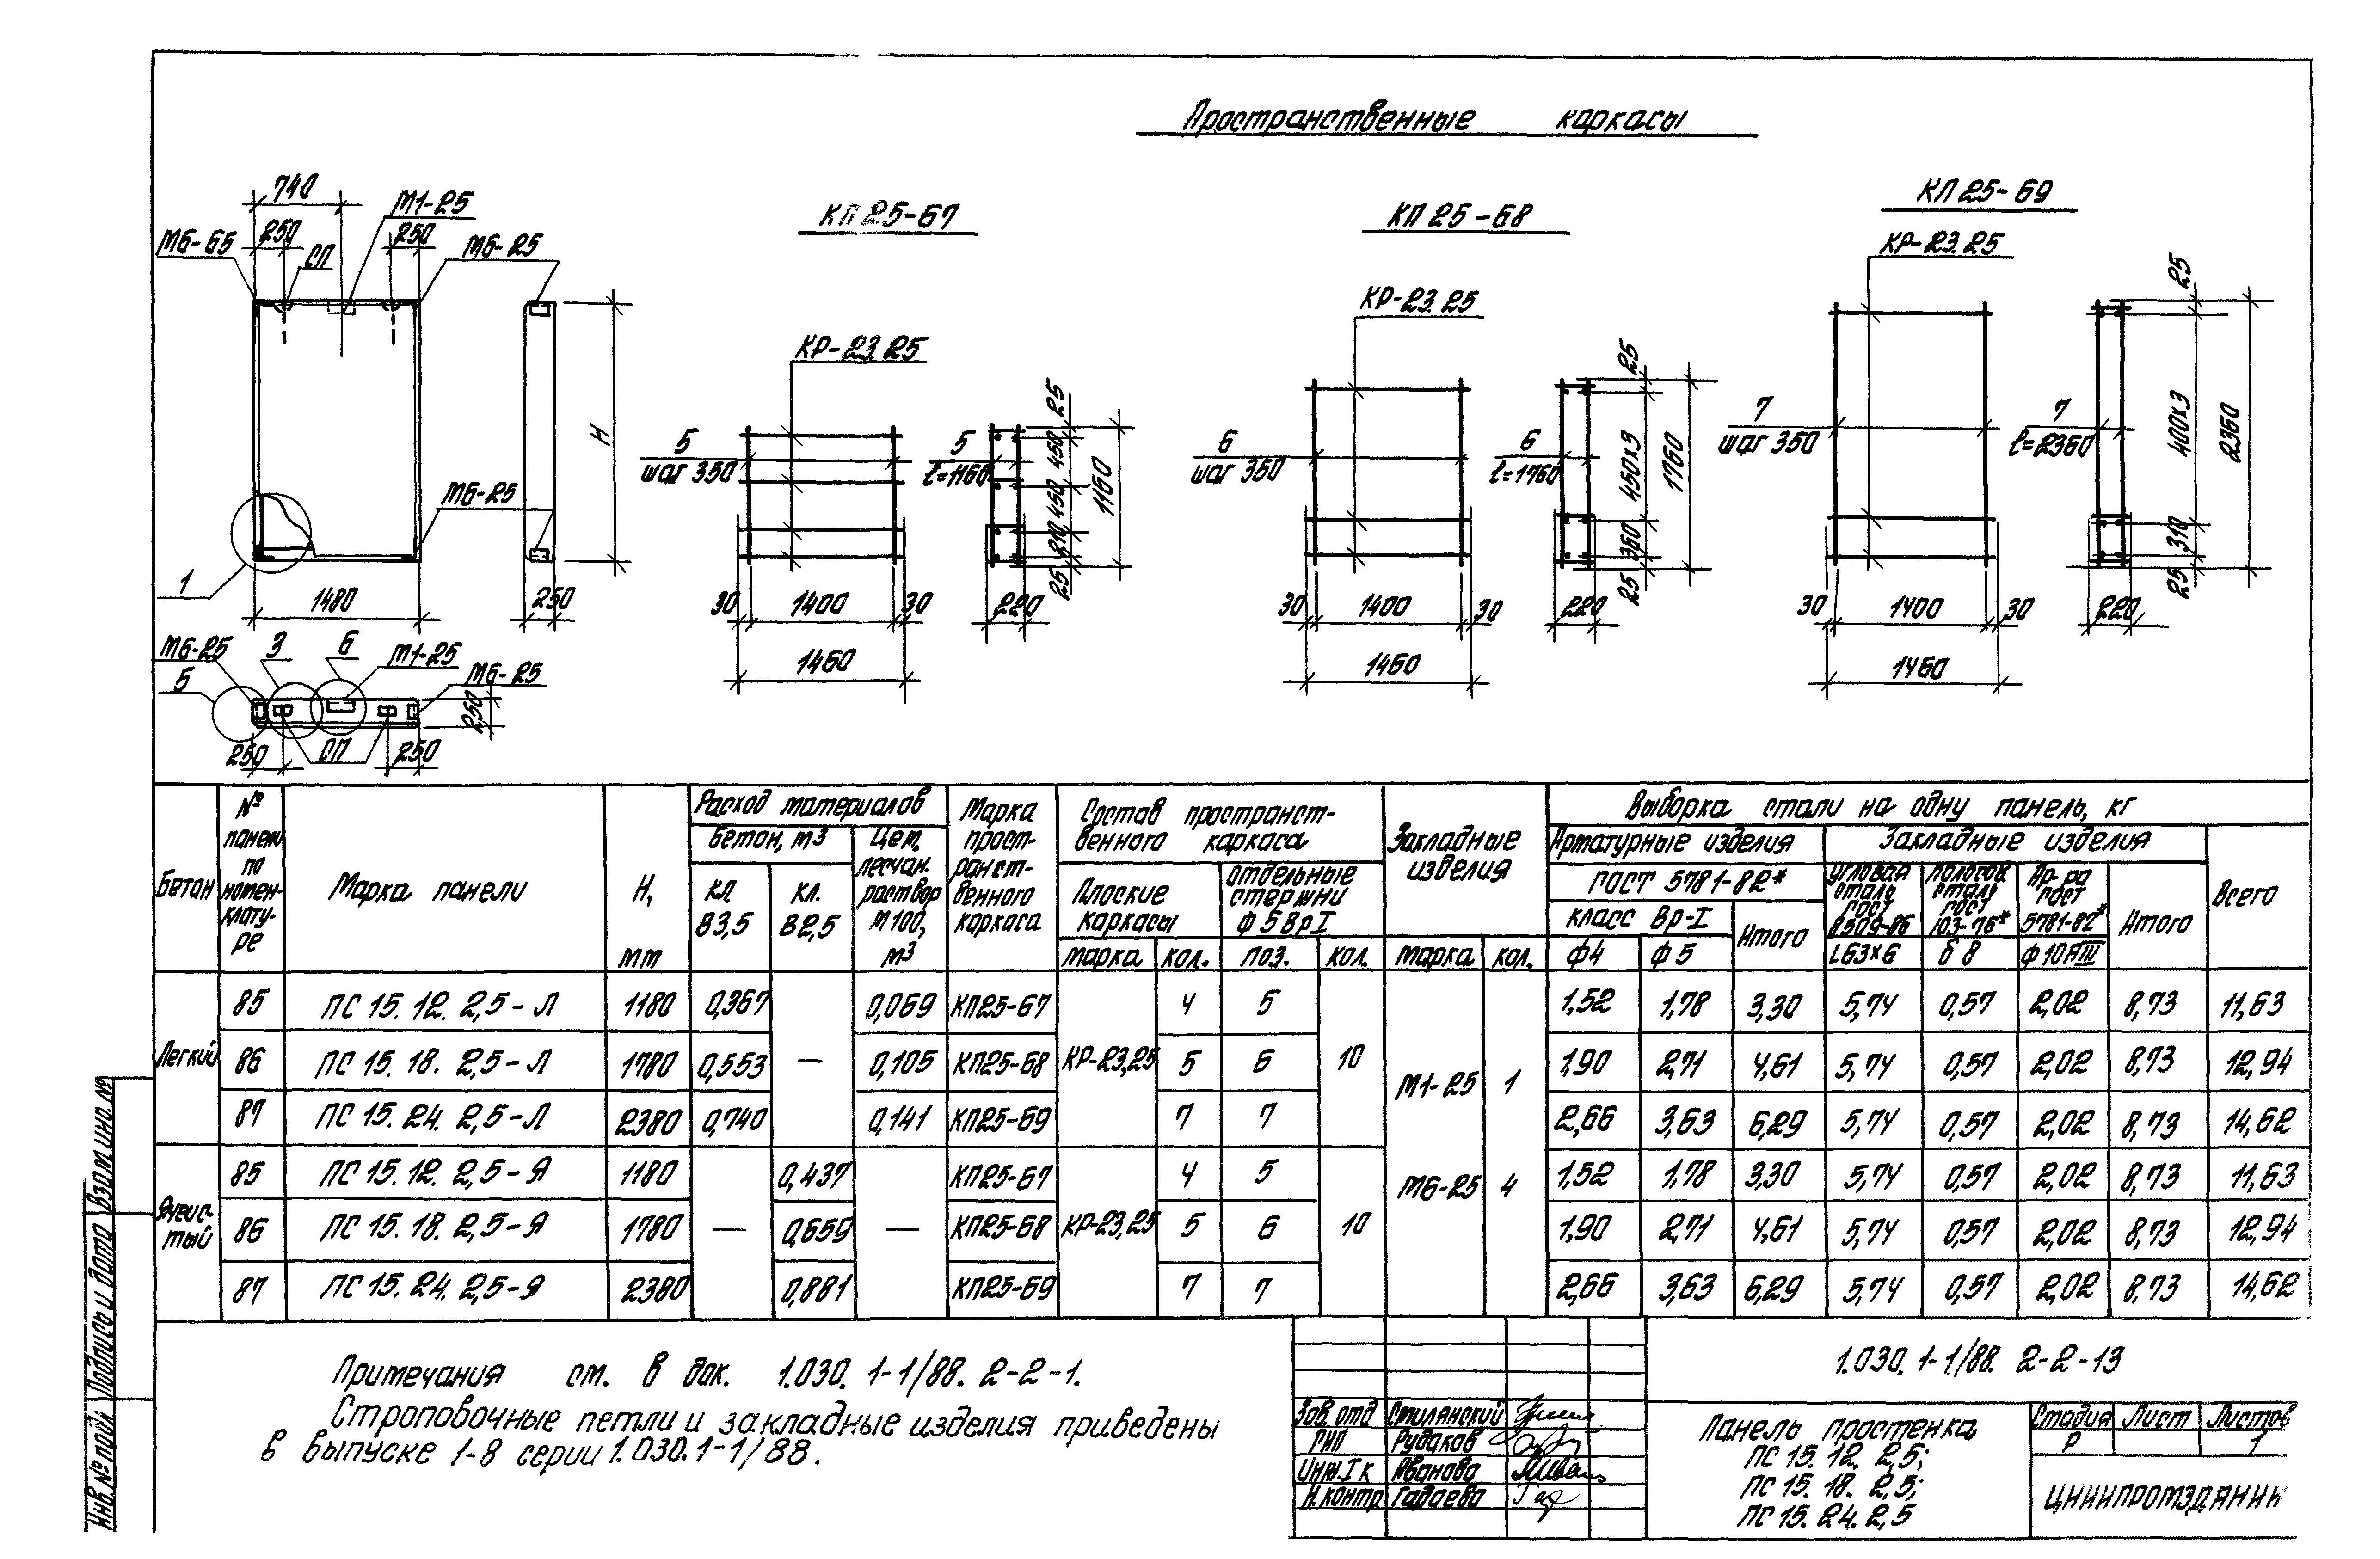 Пространственные каркасы
740
М1-25
250
250
М6-65
СП
М6-25
Н
М6-25
1
1480
250
М6-25
3
6
М1-25
М6-25
5
250
250
СП
250
КП 25-67
КР-23.25
5
шаг 350
5
ℓ=1160
25
450
450
210
25
1160
30
1400
30
220
1460
КП 25-68
КР-23.25
6
шаг 350
6
ℓ=1760
25
450х3
360
25
1760
30
1400
30
220
1460
КП 25-69
КР-23.25
7
шаг 350
7
ℓ=2360
25
400х3
310
25
2360
30
1400
30
220
1460
Бетон
№ панели по номенклатуре
Марка панели
Н, мм
Расход материалов
Бетон, м3
кл. В3,5
кл. В2,5
Цем. песчан. раствор М100, м3
Марка прост-ранст-венного каркаса
Состав пространст-венного каркаса
Плоские каркасы
отдельные стержни Ф 5 Вр I
марка
кол.
поз.
кол.
Закладные изделия
марка
кол.
Выборка стали на одну панель, кг
Арматурные изделия
ГОСТ 5781-82*
класс Вр-I
Итого
Ф4
Ф5
Закладные изделия
Угловая сталь ГОСТ 8509-86
L63х6
полосов. сталь ГОСТ 103-76*
δ 8
Ар-ра ГОСТ 5781-82*
Ф 10 АIII
Итого
Всего
Легкий
85 ПС 15. 12. 2,5-Л 1180 0,367 0,069 КП25-67 4 5 1,52 1,78 3,30 5,74 0,57 2,02 8,73 11,63
86 ПС 15. 18. 2,5-Л 1780 0,553 — 0,105 КП25-68 КР-23,25 5 6 10 1,90 2,71 4,61 5,74 0,57 2,02 8,73 12,94
М1-25 1
87 ПС 15. 24. 2,5-Л 2380 0,740 0,141 КП25-69 7 7 2,66 3,63 6,29 5,74 0,57 2,02 8,73 14,62
Ячеис-тый
85 ПС 15. 12. 2,5-Я 1180 0,437 КП25-67 4 5 1,52 1,78 3,30 5,74 0,57 2,02 8,73 11,63
М6-25 4
86 ПС 15. 18. 2,5-Я 1780 — 0,659 — КП25-68 КР-23,25 5 6 10 1,90 2,71 4,61 5,74 0,57 2,02 8,73 12,94
87 ПС 15. 24. 2,5-Я 2380 0,881 КП25-69 7 7 2,66 3,63 6,29 5,74 0,57 2,02 8,73 14,62
Примечания см. в док. 1.030. 1-1/88. 2-2-1.
Строповочные петли и закладные изделия приведены
в выпуске 1-8 серии 1.030.1-1/88.
Инв.№ подл
Подпись и дата
Взам инв. №
Зав. отд Стилянский
РНП Рудаков
Инж. I к Иванова
Н. контр Гадаева
1.030. 1-1/88. 2-2-13
Панель простенка
ПС 15. 12. 2,5;
ПС 15. 18. 2,5;
ПС 15. 24. 2,5
Стадия Лист Листов
Р 1
ЦНИИПРОМЗДАНИЙ